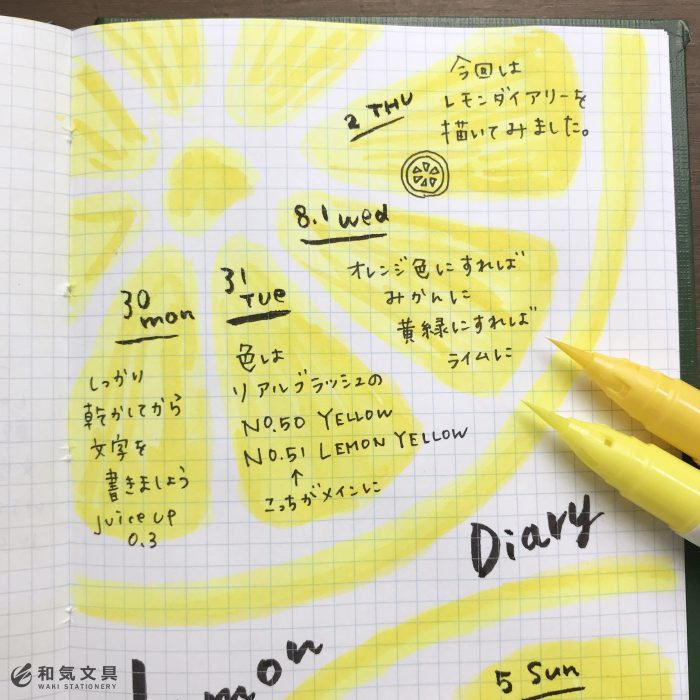 30
mon
しっかり
乾かしてから
文字を
書きましょう
Juice up
0.3
31
TUE
色は
リアルブラッシュの
NO.50 YELLOW
NO.51 LEMON YELLOW
↑
こっちがメインに
8.1 wed
オレンジ色にすれば
みかんに
黄緑にすれば
ライムに
2 THU
今回は
レモンダイアリーを
描いてみました。
Diary
5 Sun
和気文具
WAKI STATIONERY